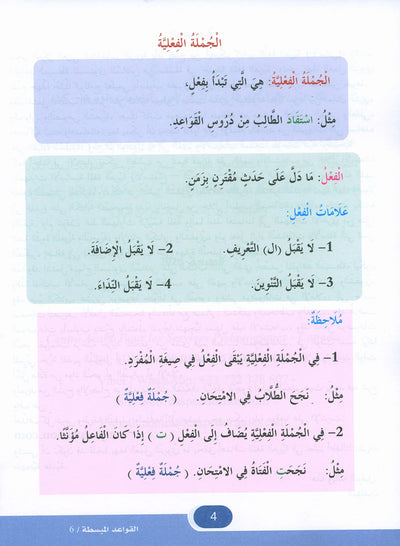 الْجُمْلَةُ الْفِعْلِيَّةُ
الْجُمْلَةُ الْفِعْلِيَّةُ: هِيَ الَّتِي تَبْدَأُ بِفِعْلٍ،
مِثْلُ: اسْتَفَادَ الطَّالِبُ مِنْ دُرُوسِ الْقَوَاعِدِ.
الْفِعْلُ: مَا دَلَّ عَلَى حَدَثٍ مُقْتَرِنٍ بِزَمَنٍ.
عَلَامَاتُ الْفِعْلِ:
1- لَا يَقْبَلُ (ال) التَّعْرِيفِ. 2- لَا يَقْبَلُ الْإِضَافَةَ.
3- لَا يَقْبَلُ التَّنْوِينَ. 4- لَا يَقْبَلُ النِّدَاءَ.
مُلَاحِظَةٌ:
1- فِي الْجُمْلَةِ الْفِعْلِيَّةِ يَبْقَى الْفِعْلُ فِي صِيغَةِ الْمُفْرَدِ.
مِثْلُ: نَجَحَ الطُّلَّابُ فِي الامْتِحَانِ. ( جُمْلَةٌ فِعْلِيَّةٌ )
2- فِي الْجُمْلَةِ الْفِعْلِيَّةِ يُضَافُ إِلَى الْفِعْلِ ( ت ) إِذَا كَانَ الْفَاعِلُ مُؤَنَّثًا.
مِثْلُ: نَجَحَتِ الْفَتَاةُ فِي الامْتِحَانِ. ( جُمْلَةٌ فِعْلِيَّةٌ )
4
القواعد المبسطة / 6